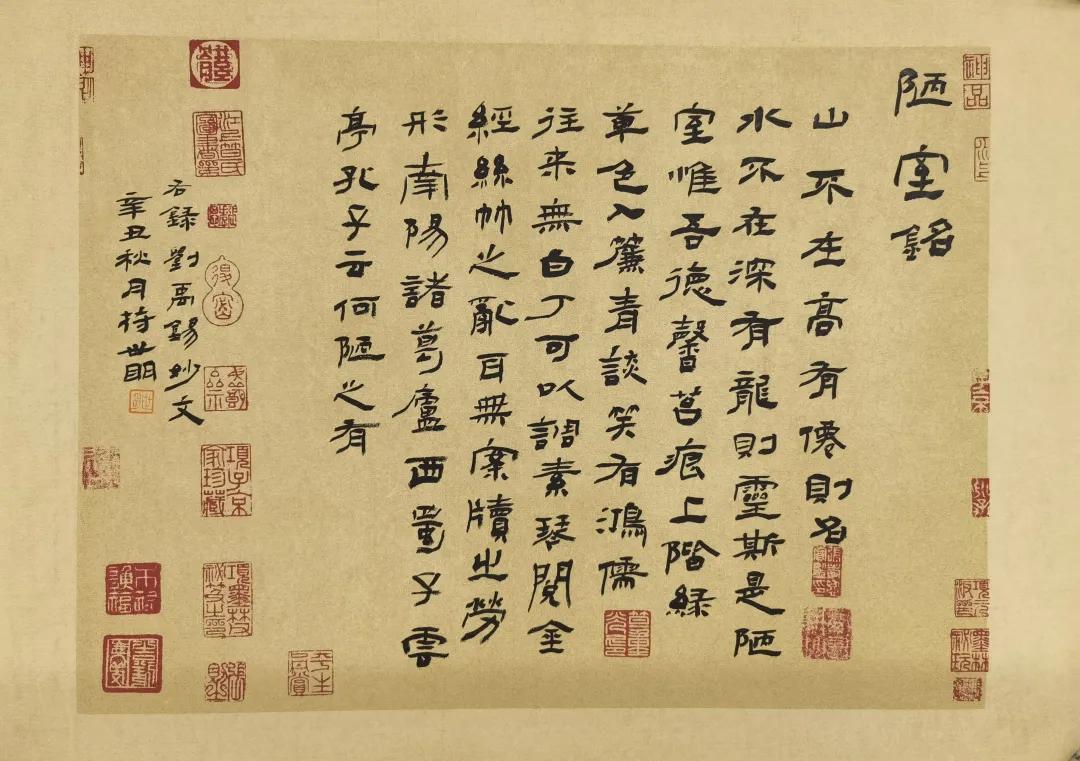 陋室銘
山不在高有僊則名
水不在深有龍則靈斯是陋
室惟吾德馨苔痕上階緑
草色入簾青談笑有鴻儒
往来無白丁可以調素琴閱金
經絲竹之亂耳無案牘之勞
形南陽諸葛廬西蜀子雲
亭孔子云何陋之有
右録劉禹錫妙文
辛丑秋月持世明
神品
墨林秘玩
項子京家珍藏
項墨林秘笈之印